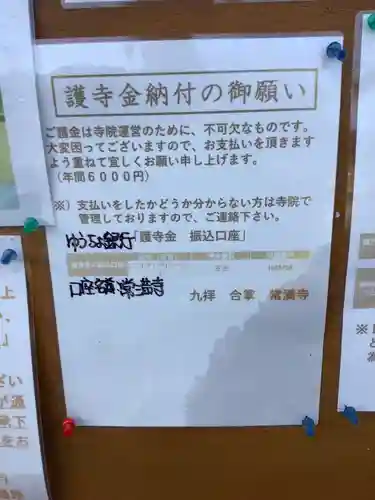 護寺金納付の御願い
ご護金は寺院運営のために、不可欠なものです。
大変困ってございますので、お支払いを頂きます
よう重ねて宜しくお願い申し上げます。
(年間6000円)
※)支払いをしたかどうか分からない方は寺院で
管理しておりますので、ご連絡下さい。
ゆうちょ銀行「護寺金 振込口座」
口座名義:常
九拝 合掌 常 寺